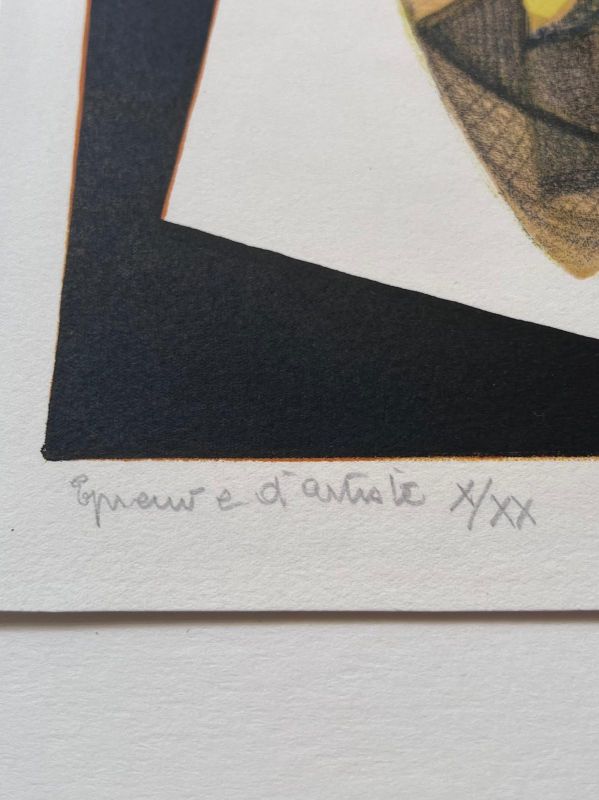 Epreuve d'artiste X/XX